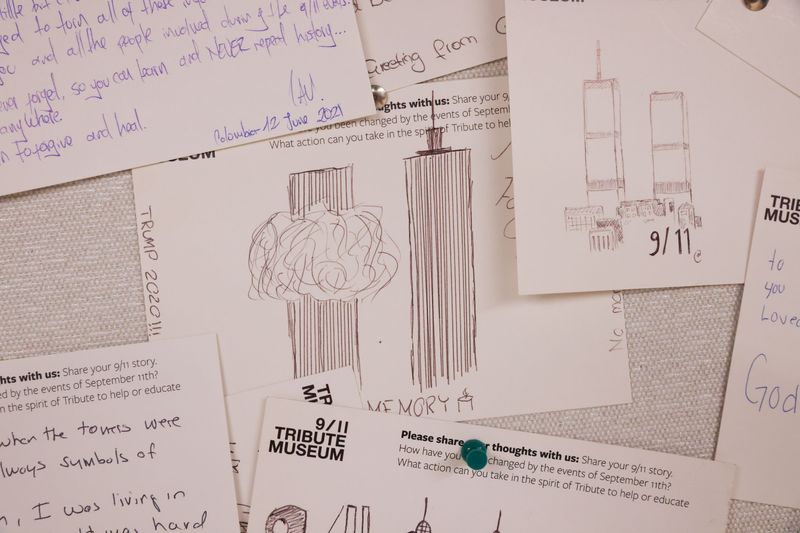 to turn all of these
you and all the people involved during the 9/11 events.
forget, so you can learn and NEVER repeat history...
anywhere.
to forgive and heal.
Colombier 12 June 2021
Greeting from
MUSEUM
thoughts with us: Share your 9/
you been changed by the events of Septemb
What action can you take in the spirit of Tribute to hel
TRUMP 2020!!!
MEMORY
No mo
MUSEUM
9/11
TRIB
MUS
to
you
Love
God
hts with us: Share your 9/11 story.
ed by the events of September 11th?
n the spirit of Tribute to help or educate
when the towers were
always symbols of
I was living in
was hard
TR
M
9/11
TRIBUTE
MUSEUM
Please share your thoughts with us: Share your 9/11 story.
How have you changed by the events of September 11th?
What action can you take in the spirit of Tribute to help or educate